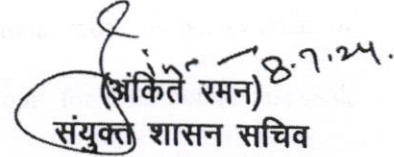 8.7.24.
(अंकित रमन)
संयुक्त शासन सचिव